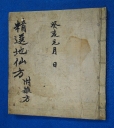 癸亥元月 日
精選地仙方
附雜方